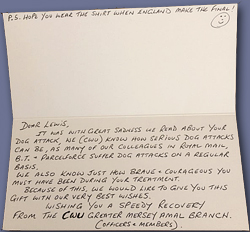 P.S. HOPE YOU WEAR THE SHIRT WHEN ENGLAND MAKE THE FINAL!
DEAR LEWIS,
IT WAS WITH GREAT SADNESS WE READ ABOUT YOUR
DOG ATTACK, WE (CWU) KNOW HOW SERIOUS DOG ATTACKS
CAN BE, AS MANY OF OUR COLLEAGUES IN ROYAL MAIL,
B.T. + PARCELFORCE SUFFER DOG ATTACKS ON A REGULAR
BASIS.
WE ALSO KNOW JUST HOW BRAVE + COURAGEOUS YOU
MUST HAVE BEEN DURING YOUR TREATMENT.
BECAUSE OF THIS, WE WOULD LIKE TO GIVE YOU THIS
GIFT WITH OUR VERY BEST WISHES.
WISHING YOU A SPEEDY RECOVERY
FROM THE CWU GREATER MERSEY AMAL BRANCH.
(OFFICERS + MEMBERS)